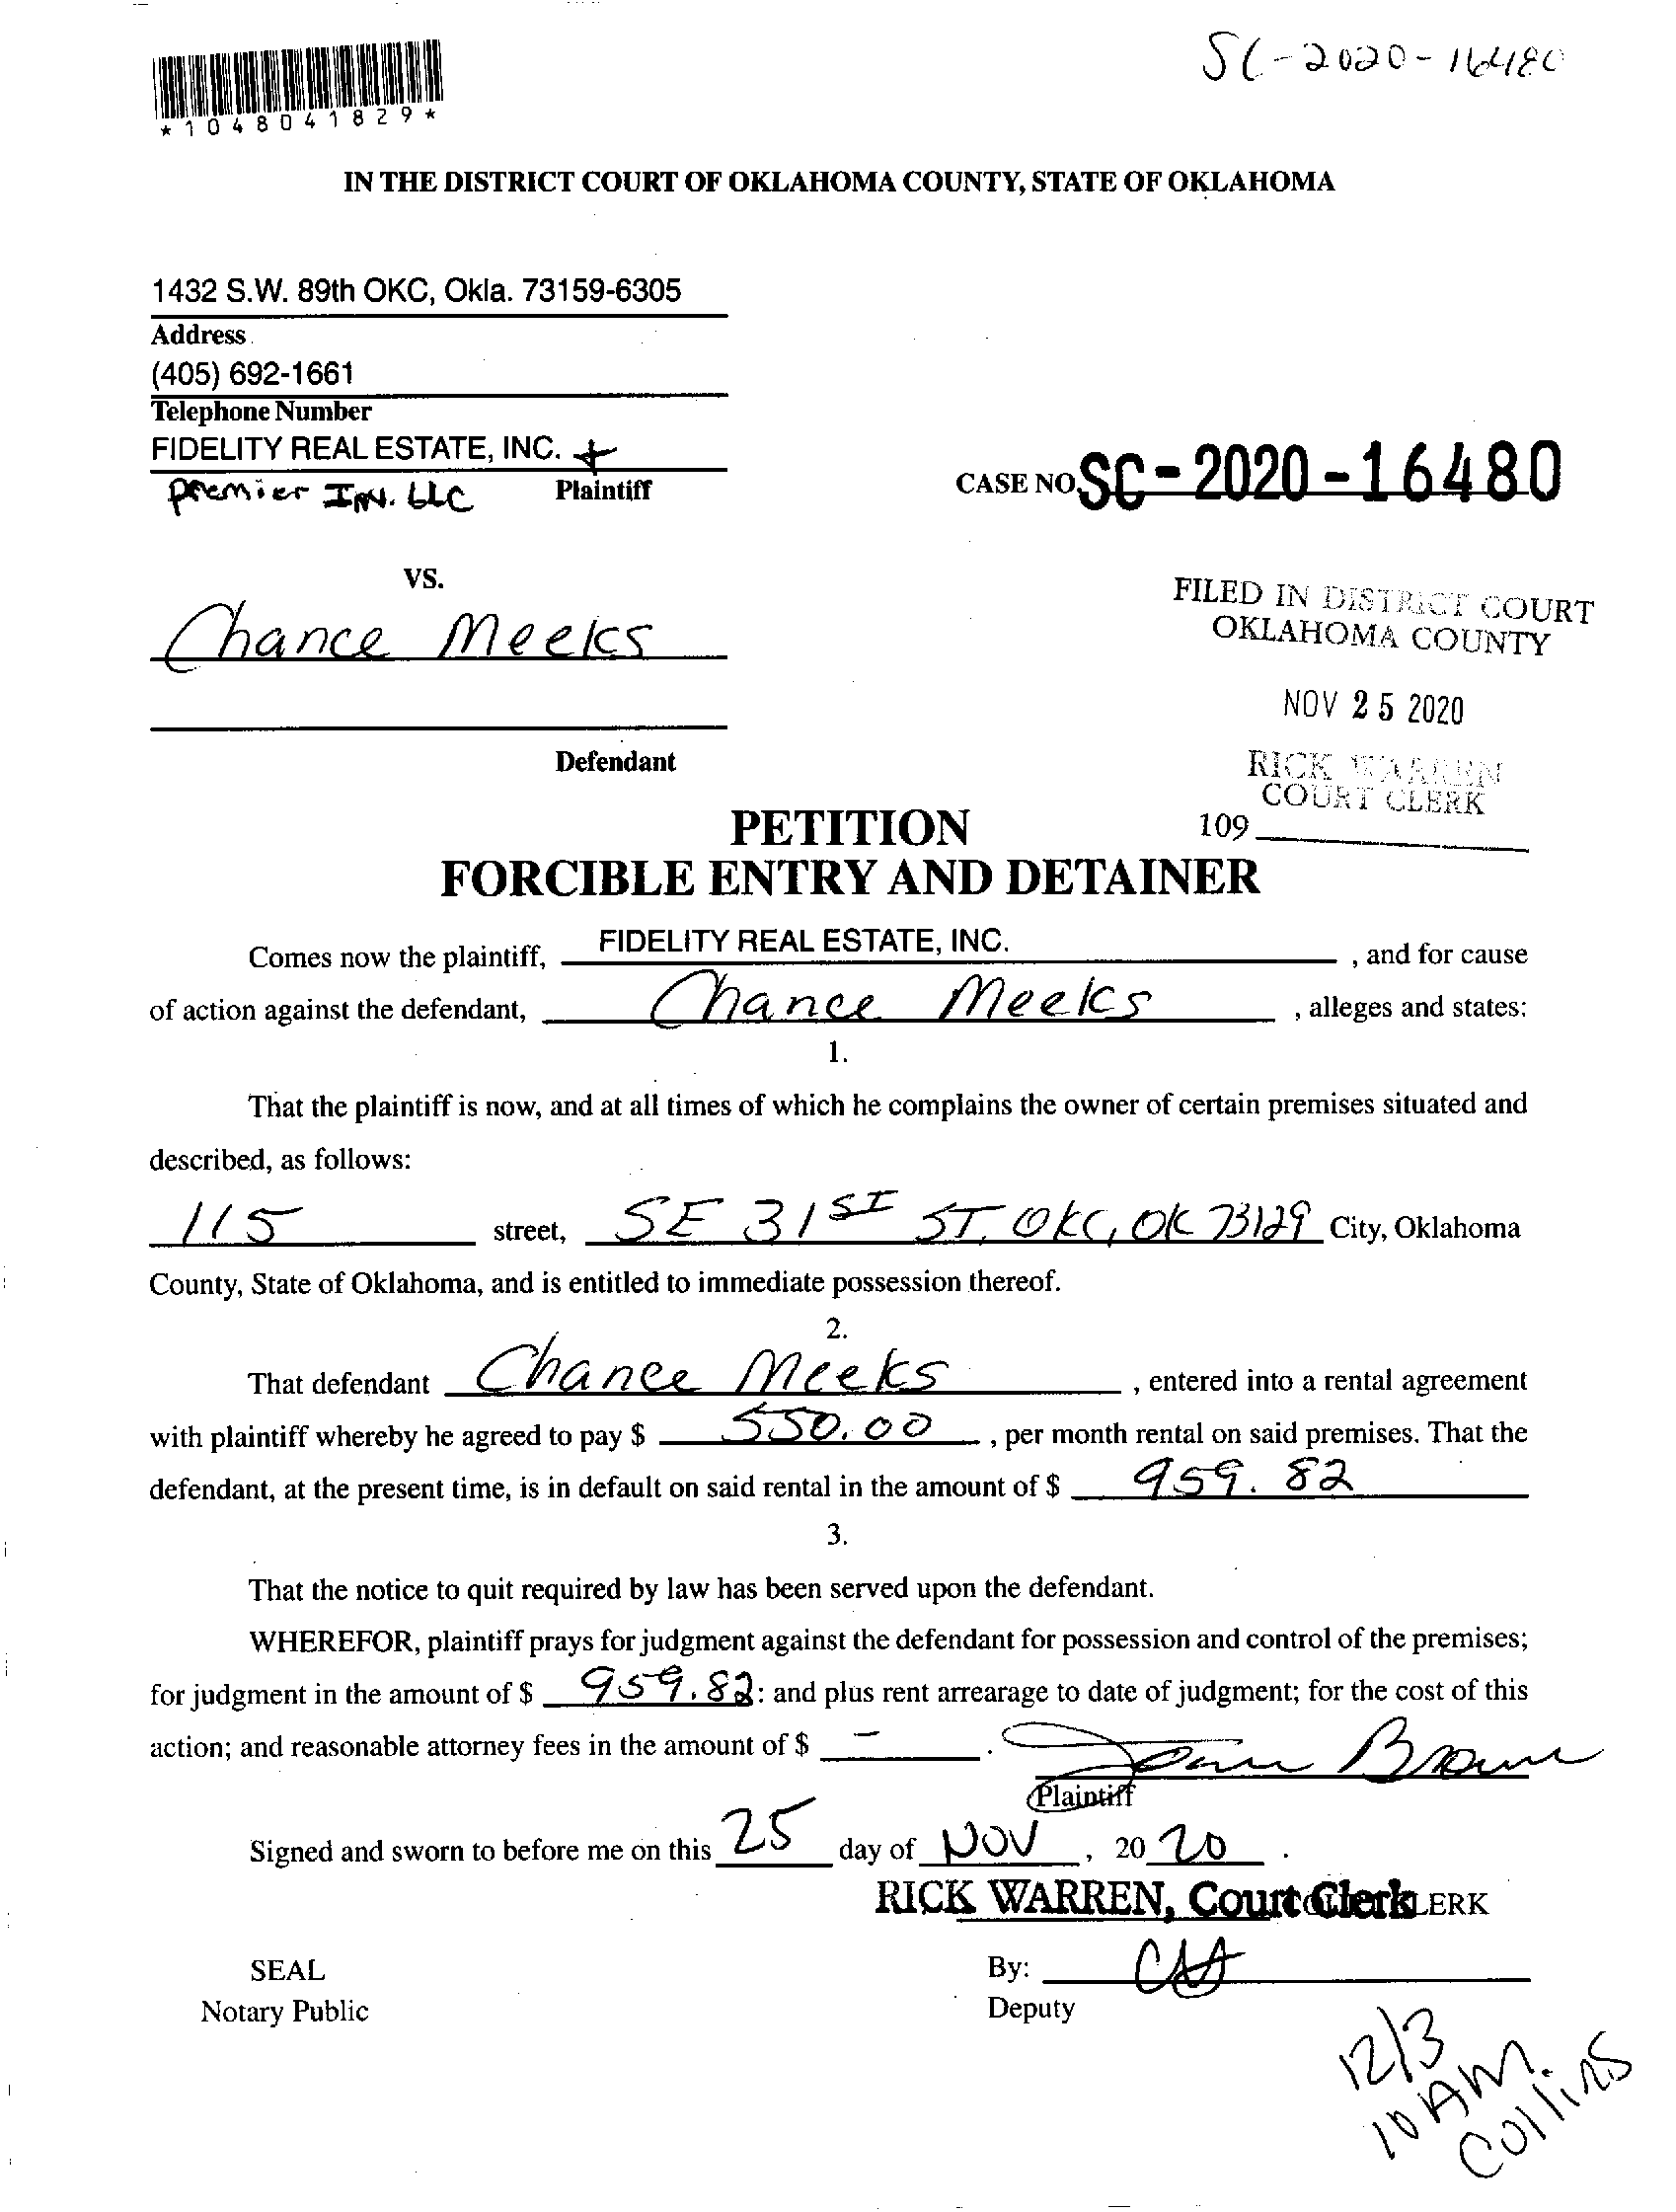 SC-2020-16480
*1048041829*
IN THE DISTRICT COURT OF OKLAHOMA COUNTY, STATE OF OKLAHOMA
1432 S.W. 89th OKC, Okla. 73159-6305
Address
(405) 692-1661
Telephone Number
FIDELITY REAL ESTATE, INC. +
Premier Inv. LLC Plaintiff
CASE NO. SC-2020-16480
VS.
Chance Meeks
FILED IN DISTRICT COURT
OKLAHOMA COUNTY
NOV 25 2020
Defendant
RICK WARREN
COURT CLERK
109
PETITION
FORCIBLE ENTRY AND DETAINER
Comes now the plaintiff, FIDELITY REAL ESTATE, INC. , and for cause
of action against the defendant, Chance Meeks , alleges and states:
1.
That the plaintiff is now, and at all times of which he complains the owner of certain premises situated and
described, as follows:
115 street, SE 31ST ST. OKC, OK 73129 City, Oklahoma
County, State of Oklahoma, and is entitled to immediate possession thereof.
2.
That defendant Chance Meeks , entered into a rental agreement
with plaintiff whereby he agreed to pay $ 550.00 , per month rental on said premises. That the
defendant, at the present time, is in default on said rental in the amount of $ 959.82
3.
That the notice to quit required by law has been served upon the defendant.
WHEREFOR, plaintiff prays for judgment against the defendant for possession and control of the premises;
for judgment in the amount of $ 959.82: and plus rent arrearage to date of judgment; for the cost of this
action; and reasonable attorney fees in the amount of $ - .
Brown
Plaintiff
Signed and sworn to before me on this 25 day of NOV , 20 20 .
RICK WARREN, Court Clerk
SEAL
By:
Notary Public
Deputy
12/3
10 AM.
Collins